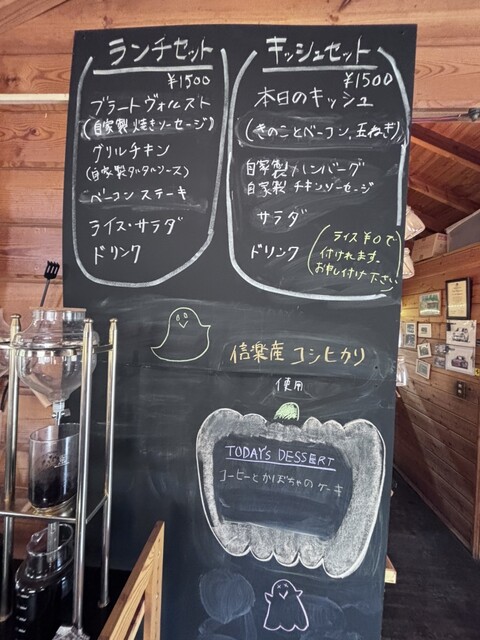 ランチセット
¥1500
ブラートヴルスト
(自家製焼きソーセージ)
グリルチキン
(自家製タルタルソース)
ベーコンステーキ
ライス・サラダ
ドリンク
キッシュセット
¥1500
本日のキッシュ
(きのことベーコン、玉ねぎ)
自家製ハンバーグ
自家製チキンソーセージ
サラダ
ドリンク
(ライス¥0で
付けれます。
お申し付け下さい)
信楽産コシヒカリ
使用
TODAY's DESSERT
コーヒーとかぼちゃのケーキ